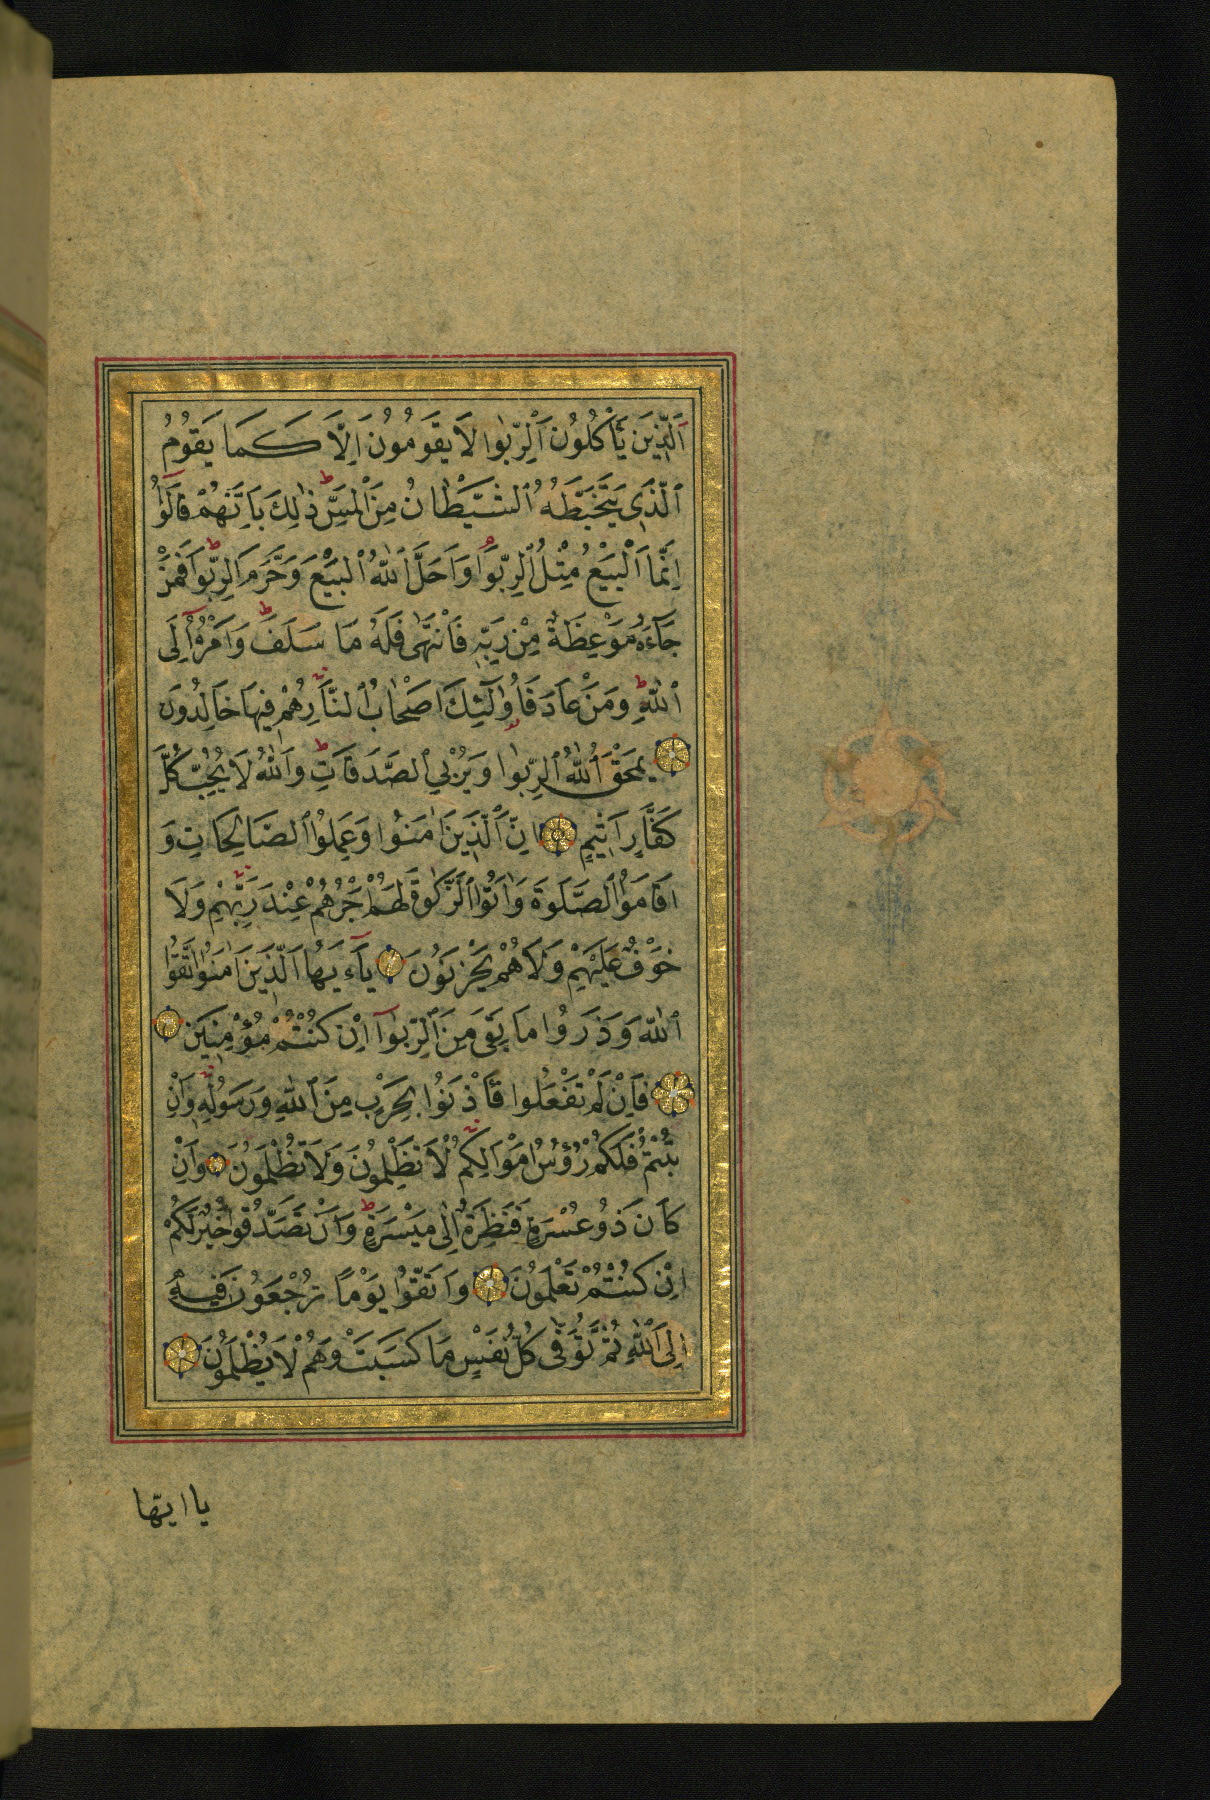 اَلَّذِينَ يَأْكُلُونَ الرِّبٰوا لَا يَقُومُونَ اِلَّا كَمَا يَقُومُ
الَّذِي يَتَخَبَّطُهُ الشَّيْطَانُ مِنَ الْمَسِّ ط ذٰلِكَ بِاَنَّهُمْ قَالُوا
اِنَّمَا الْبَيْعُ مِثْلُ الرِّبٰوا وَاَحَلَّ اللهُ الْبَيْعَ وَحَرَّمَ الرِّبٰوا ط فَمَنْ
جَآءَهُ مَوْعِظَةٌ مِنْ رَبِّهِ فَانْتَهٰى فَلَهُ مَا سَلَفَ ط وَاَمْرُهُ اِلَى
اللهِ ط وَمَنْ عَادَ فَاُولٰئِكَ اَصْحَابُ النَّارِ هُمْ فِيهَا خَالِدُونَ
يَمْحَقُ اللهُ الرِّبٰوا وَيُرْبِي الصَّدَقَاتِ ط وَاللهُ لَا يُحِبُّ كُلَّ
كَفَّارٍ اَثِيمٍ اِنَّ الَّذِينَ اٰمَنُوا وَعَمِلُوا الصَّالِحَاتِ وَ
اَقَامُوا الصَّلٰوةَ وَاٰتَوُا الزَّكٰوةَ لَهُمْ اَجْرُهُمْ عِنْدَ رَبِّهِمْ وَلَا
خَوْفٌ عَلَيْهِمْ وَلَا هُمْ يَحْزَنُونَ يَآءَيُّهَا الَّذِينَ اٰمَنُوا اتَّقُوا
اللهَ وَذَرُوا مَا بَقِيَ مِنَ الرِّبٰوآ اِنْ كُنْتُمْ مُؤْمِنِينَ
فَاِنْ لَمْ تَفْعَلُوا فَأْذَنُوا بِحَرْبٍ مِنَ اللهِ وَرَسُولِهِ وَاِنْ
تُبْتُمْ فَلَكُمْ رُؤُسُ اَمْوَالِكُمْ لَا تَظْلِمُونَ وَلَا تُظْلَمُونَ وَاِنْ
كَانَ ذُو عُسْرَةٍ فَنَظِرَةٌ اِلٰى مَيْسَرَةٍ ط وَاَنْ تَصَدَّقُوا خَيْرٌ لَكُمْ
اِنْ كُنْتُمْ تَعْلَمُونَ وَاتَّقُوا يَوْمًا تُرْجَعُونَ فِيهِ
اِلَى اللهِ ثُمَّ تُوَفّٰى كُلُّ نَفْسٍ مَا كَسَبَتْ وَهُمْ لَا يُظْلَمُونَ
يا ايها